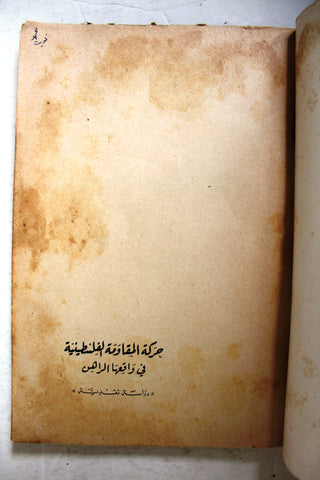 حركة المقاومة الفلسطينية
في واقعها الراهن
« دراسة نقدية »